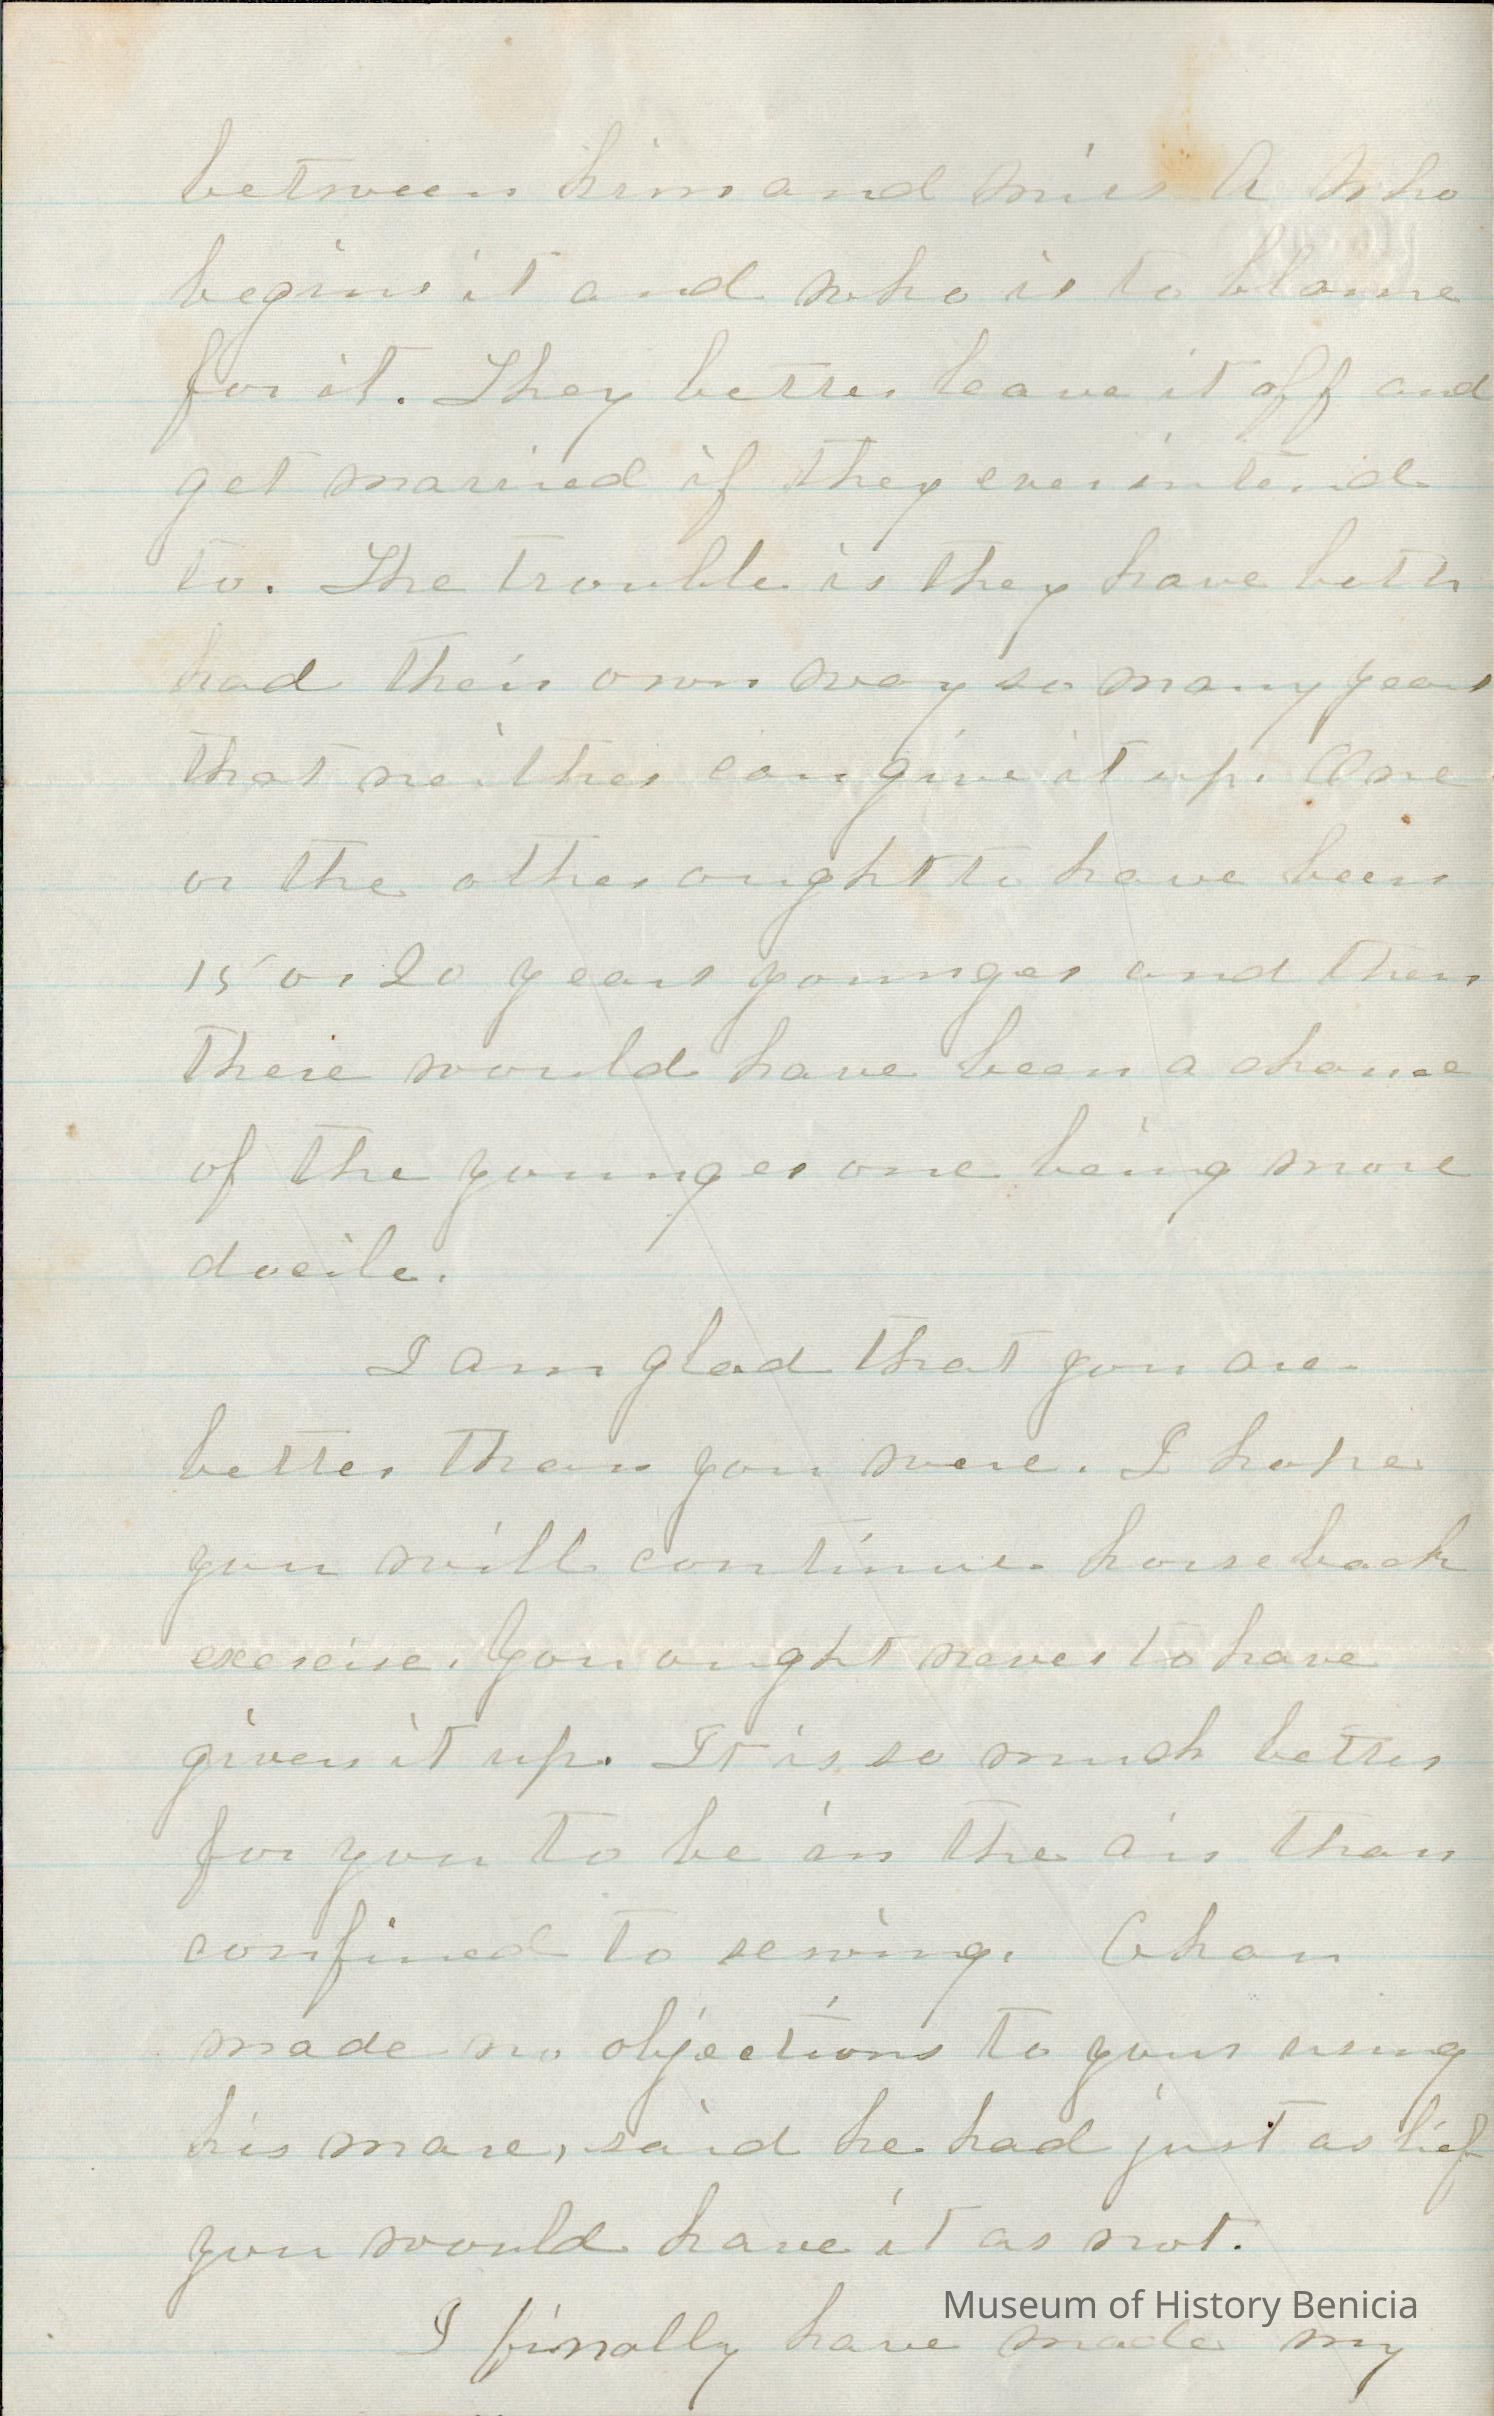 between him and Miss A who
begins it and who is to blame
for it. They better leave it off and
get married if they ever intend
to. The trouble is they have both
had their own way so many years
that neither can give it up. One
or the other ought to have been
15 or 20 years younger and then
there would have been a chance
of the younger one being more
docile.
I am glad that you are
better than you were. I hope
you will continue horseback
exercise. You ought never to have
given it up. It is so much better
for you to be in the air than
confined to sewing. Chan
made no objections to your using
his mare, said he had just as lief
you would have it as not.
Museum of History Benicia
I finally have made my